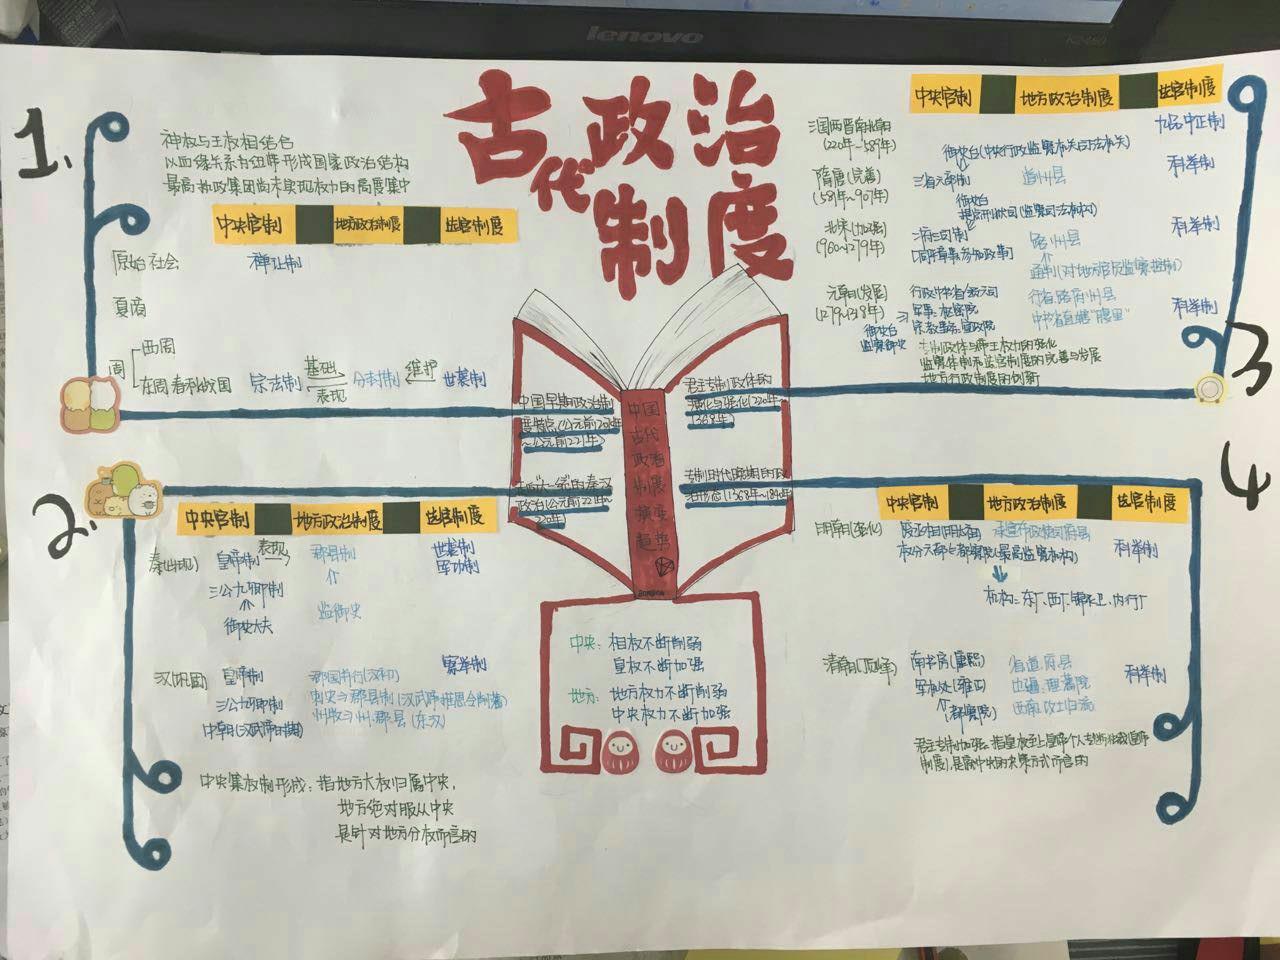 lenovo
古代政治
制度
1.
神权与王权相结合
以血缘关系为纽带形成国家政治结构
最高执政集团尚未实现权力的高度集中
中央官制 地方政治制度 选官制度
原始社会 禅让制
夏商
周 西周
东周 春秋战国
宗法制 基础 表现 分封制 维护 世袭制
中国早期政治制
度特点(公元前2070年
~公元前221年)
2.
中央官制 地方政治制度 选官制度
秦(出现) 皇帝制 表现 郡县制 世袭制
军功制
三公九卿制
御史大夫 监御史
汉(巩固) 皇帝制 郡国并行(汉初) 察举制
三公九卿制 刺史→郡县制(汉武帝推恩令削藩)
中朝(汉武帝时期) 州牧→州.郡县(东汉)
中央集权制形成：指地方大权归属中央,
地方绝对服从中央
是针对地方分权而言的
走向"大一统"的秦汉
政治(公元前221年~
220年)
中国
古代
政治
制度
演变
趋势
君主专制政体的
演化与强化(220年~
1368年)
专制时代晚期的政
治形态(1368年~1840年)
中央：相权不断削弱
皇权不断加强
地方：地方权力不断削弱
中央权力不断加强
3
中央官制 地方政治制度 选官制度
三国两晋南北朝
(220年~589年) 九品中正制
御史台(中央行政监察机关司法机关)
隋唐(完善)
(581年~907年) 三省六部制 道州县 科举制
御史台
提点刑狱司(监察司法机构)
北宋(加强)
(960~1279年) 二府三司制 路州县 科举制
[同平章事.参知政事]
通判(对地方官员监察控制)
元朝(发展)
(1279~1368年) 行政:中书省 行省.路府州县 科举制
军事:枢密院 中书省直辖"腹里"
宗教事务:宣政院
御史台
监察御史
专制政体与帝王权力的强化
监察体制和监官制度的完善与发展
地方行政制度的创新
4
中央官制 地方政治制度 选官制度
明朝(强化) 废丞相(明太祖) 承宣布政使司府县 科举制
权分六部→都察院(最高监察机构)
机构：东厂、西厂、锦衣卫、内行厂
清朝(顶峰) 南书房(康熙) 省道府县 科举制
军机处(雍正) 边疆:理藩院
(都察院) 西南:改土归流
制度),是就中央的决策方式而言的